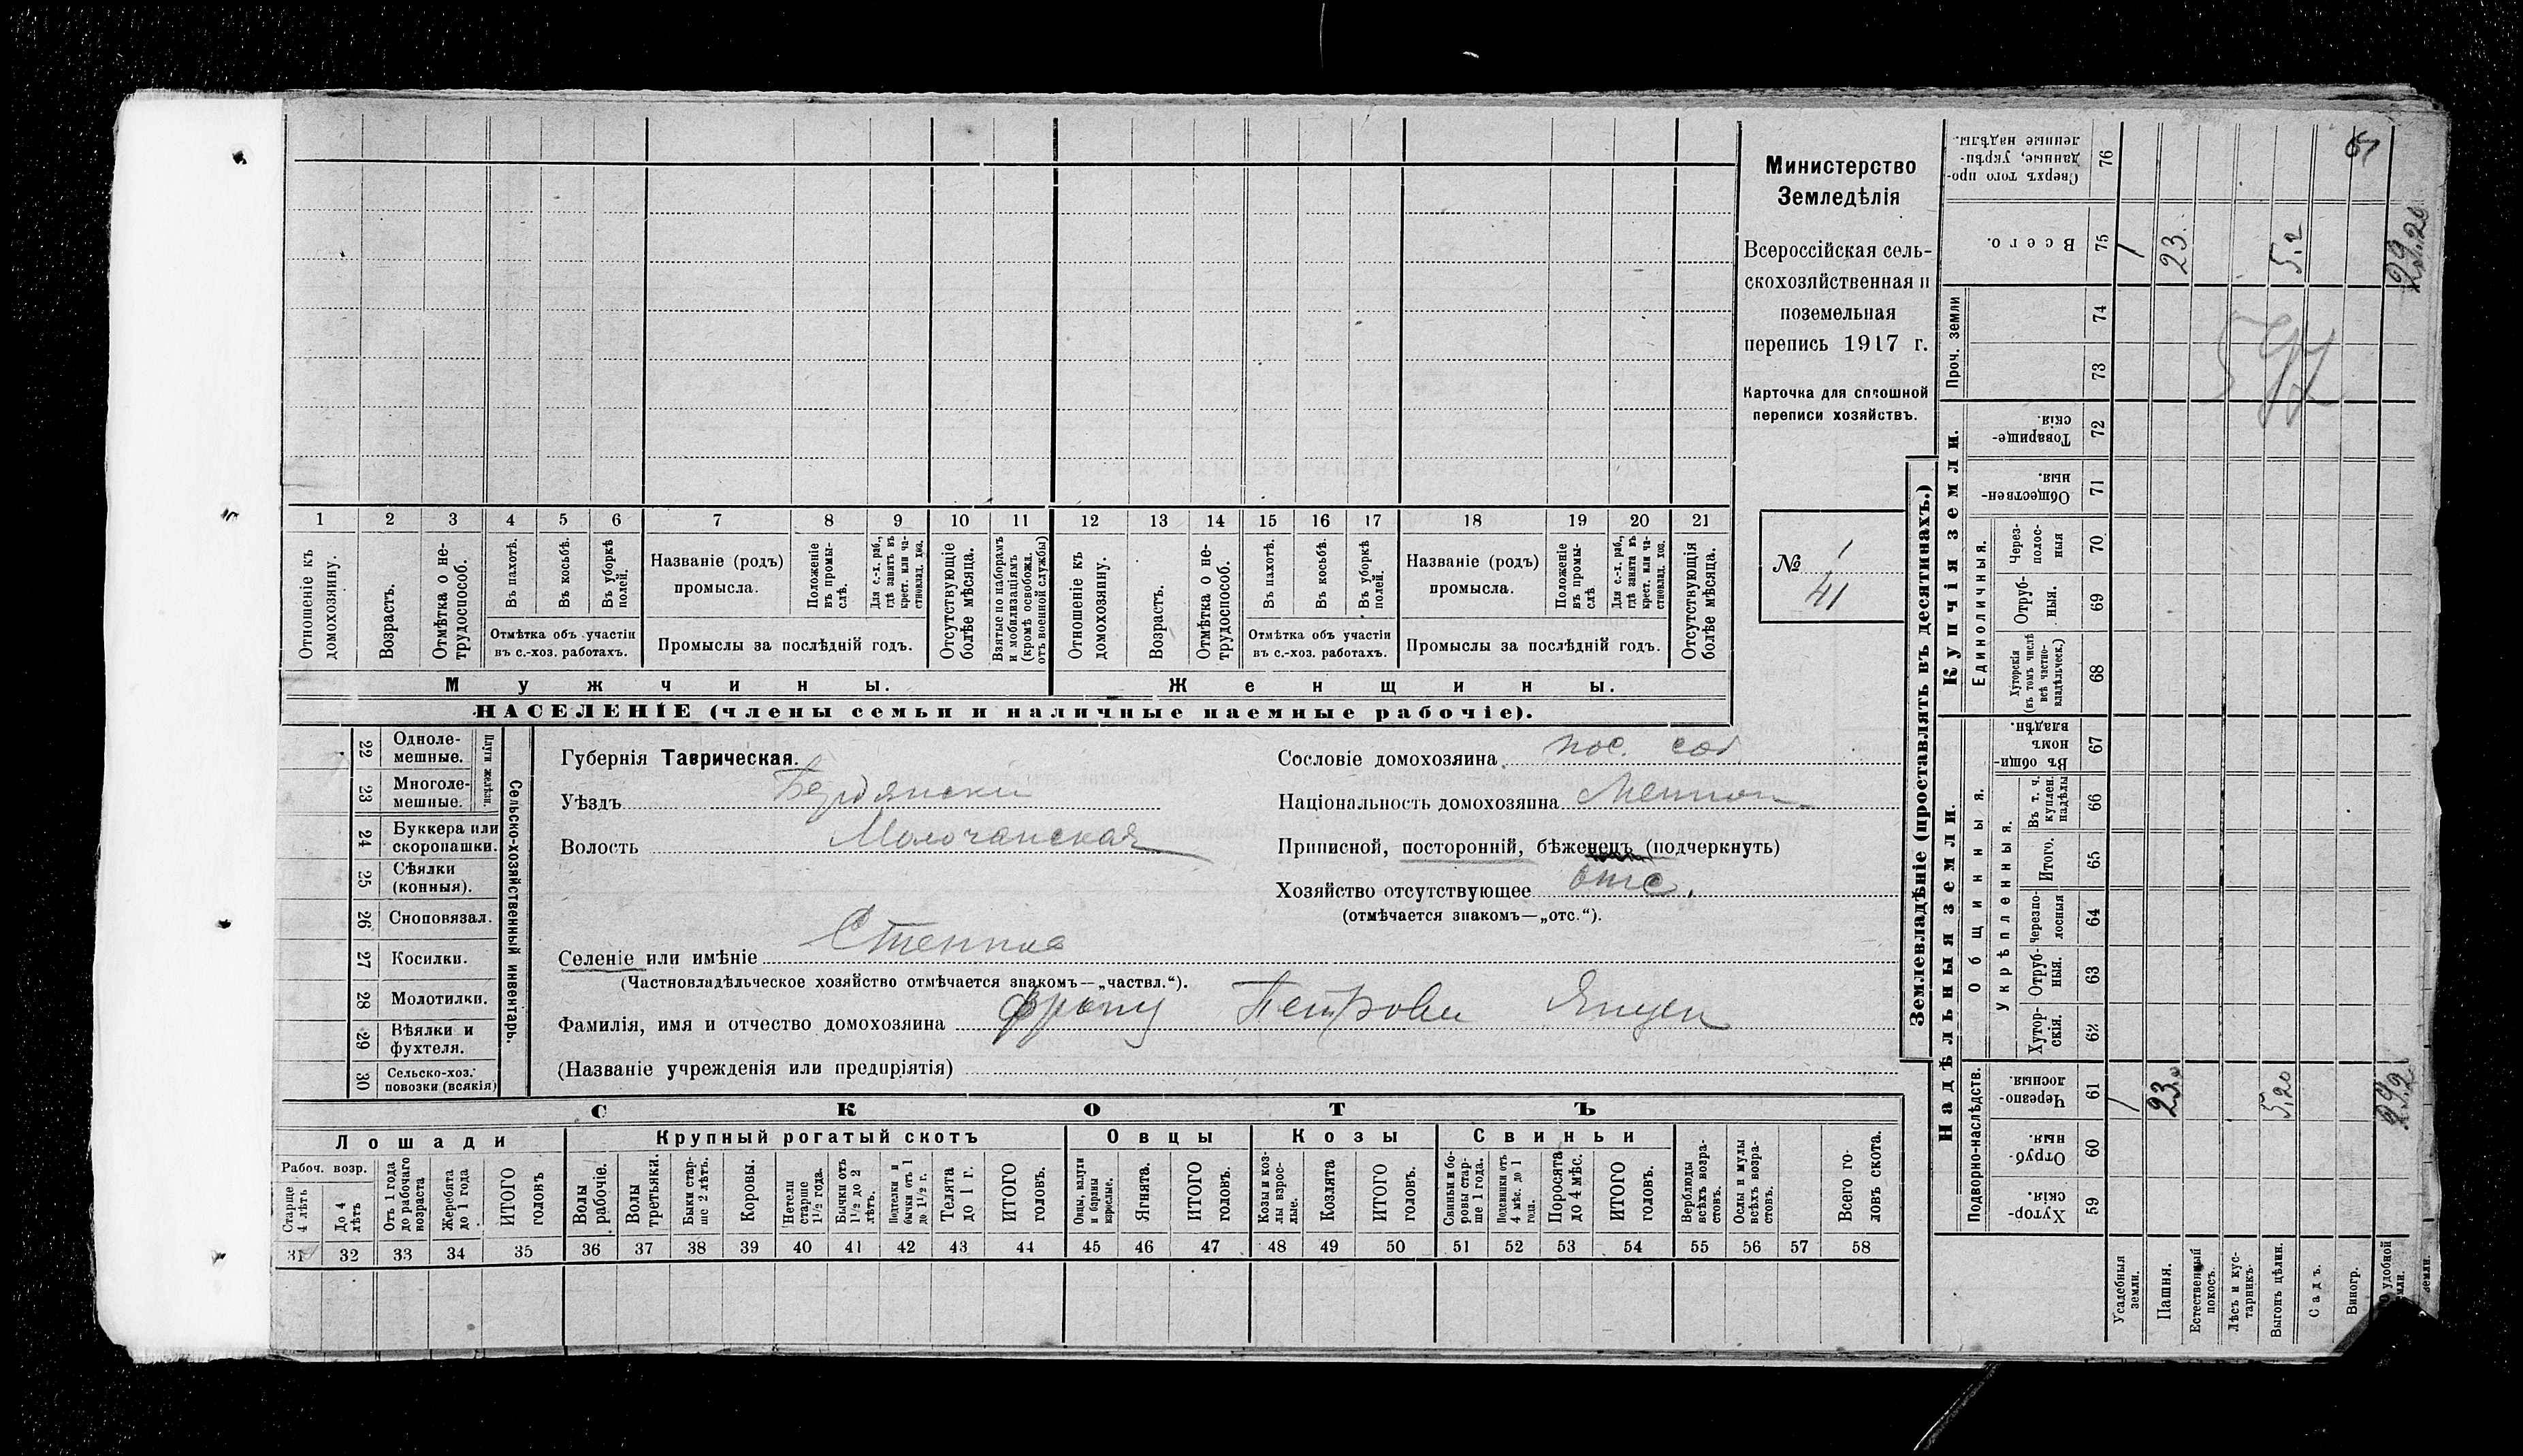 Министерство
Земледѣлія
Всероссійская сель-
скохозяйственная и
поземельная
перепись 1917 г.
Карточка для сплошной
переписи хозяйствъ.
№ 1
41
1 2 3 4 5 6 7 8 9 10 11 12 13 14 15 16 17 18 19 20 21
Отношеніе къ домохозяину.
Возрастъ.
Отмѣтка о не-трудоспособ.
Въ пахотѣ.
Въ косьбѣ.
Въ уборкѣ полей.
Отмѣтка объ участіи
въ с.-хоз. работахъ.
Названіе (родъ)
промысла.
Положеніе въ промы-слѣ.
Для с.-х. раб., гдѣ занятъ въ крест. или ча-стновлад. хоз.
Промыслы за послѣдній годъ.
Отсутствующіе болѣе мѣсяца.
Взятые по наборамъ и мобилизаціямъ (кромѣ освобожд. отъ военной службы)
Отношеніе къ домохозяину.
Возрастъ.
Отмѣтка о не-трудоспособ.
Въ пахотѣ.
Въ косьбѣ.
Въ уборкѣ полей.
Отмѣтка объ участіи
въ с.-хоз. работахъ.
Названіе (родъ)
промысла.
Положеніе въ промы-слѣ
Для с.-х. раб., гдѣ занята въ крест. или ча-стновлад. хоз.
Промыслы за послѣдній годъ.
Отсутствующія болѣе мѣсяца.
Мужчины. Женщины.
НАСЕЛЕНІЕ (члены семьи и наличные наемные рабочіе).
Сельско-хозяйственный инвентарь.
Плуги желѣзн.
22 Одноле-мешные.
23 Многоле-мешные.
24 Буккера или скоропашки.
25 Сѣялки (конныя).
26 Сноповязал.
27 Косилки.
28 Молотилки.
29 Вѣялки и фухтеля.
30 Сельско-хоз. повозки (всякія)
Губернія Таврическая.
Уѣздъ Бердянски
Волость Молочанская
Селеніе или имѣніе Степное
(Частновладѣльческое хозяйство отмѣчается знакомъ—„частвл.“).
Фамилія, имя и отчество домохозяина Францъ Петрови Янцен
(Названіе учрежденія или предпріятія)
Сословіе домохозяина пос. соб
Національность домохозяина Меннон
Приписной, посторонній, бѣженецъ (подчеркнуть)
Хозяйство отсутствующее отс.
(отмѣчается знакомъ—„отс.“).
СКОТЪ
Лошади Крупный рогатый скотъ Овцы Козы Свиньи
Рабоч. возр.
Старше 4 лѣтъ
До 4 лѣтъ
Отъ 1 года до рабочаго возраста
Жеребята до 1 года
ИТОГО головъ
Волы рабочіе.
Волы третьяки.
Быки стар-ше 2 лѣтъ.
Коровы.
Нетели старше 1½ года.
Бычки отъ 1½ до 2 лѣтъ.
Подтелки и бычки отъ 1 до 1½ г.
Телята до 1 г.
ИТОГО головъ.
Овцы, валухи и бараны взрослые.
Ягнята.
ИТОГО головъ.
Козы и коз-лы взрос-лые.
Козлята
ИТОГО головъ.
Свиньи и бо-ровы стар-ше 1 года.
Подсвинки отъ 4 мѣс. до 1 года.
Поросята до 4 мѣс.
ИТОГО головъ.
Верблюды всѣхъ возра-стовъ.
Ослы и мулы всѣхъ возра-стовъ.
Всего го-ловъ скота.
31 32 33 34 35 36 37 38 39 40 41 42 43 44 45 46 47 48 49 50 51 52 53 54 55 56 57 58
Землевладѣніе (проставлять въ десятинахъ.)
Надѣльныя земли. Купчія земли. Проч. земли
Подворно-наслѣдств. Общинныя. Единоличныя.
Укрѣпленныя.
Хутор-скія. 59
Отруб-ныя. 60
Черезпо-лосныя. 61
Хутор-скія. 62
Отруб-ныя. 63
Черезпо-лосныя 64
Итого. 65
Въ т. ч. куплен. надѣлы 66
Въ общи-номъ владѣн. 67
Хуторскія (въ томъ числѣ всѣ частно-владѣльческ.) 68
Отруб-ныя. 69
Через-полос-ныя 70
Обществен-ныя 71
Товарище-скія. 72
73
74
Всего. 75
Сверхъ того про-данные, укрѣп-ленные надѣлы. 76
Усадебныя земли. 1 1
Пашня. 23 23.
Естественный покосъ.
Лѣсъ и кус-тарникъ.
Выгонъ цѣлин. 5,20 5,2
Садъ.
Виногр.
удобной земли. 29,2 29,20
земли.
597